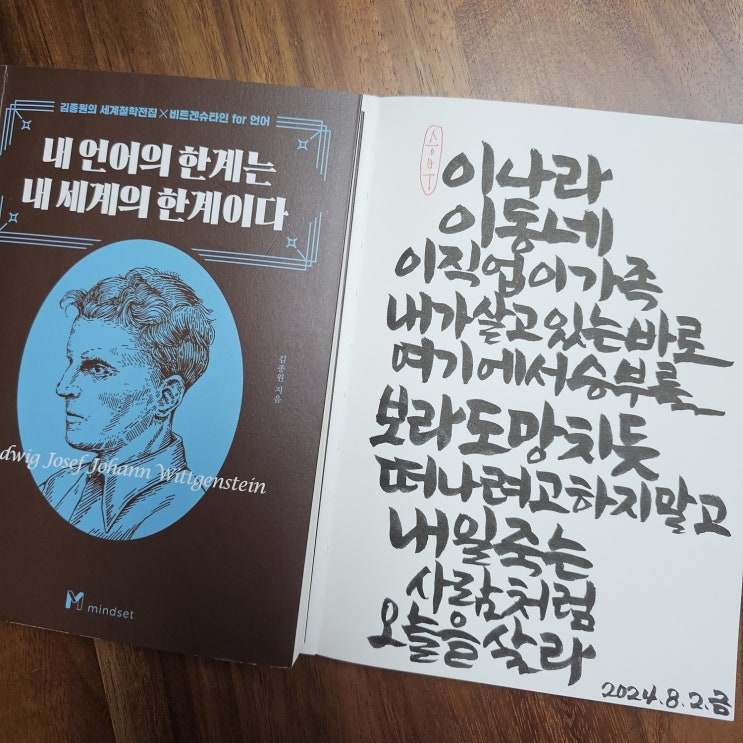 김종원의 세계철학전집×비트겐슈타인 for 언어
내 언어의 한계는
내 세계의 한계이다
김종원 지음
dwig Josef Johann Wittgenstein
mindset
이나라
이동네
이직업이가족
내가살고있는바로
여기에서승부를
보라도망치듯
떠나려고하지말고
내일죽는
사람처럼
오늘을살라
2024.8.2.금